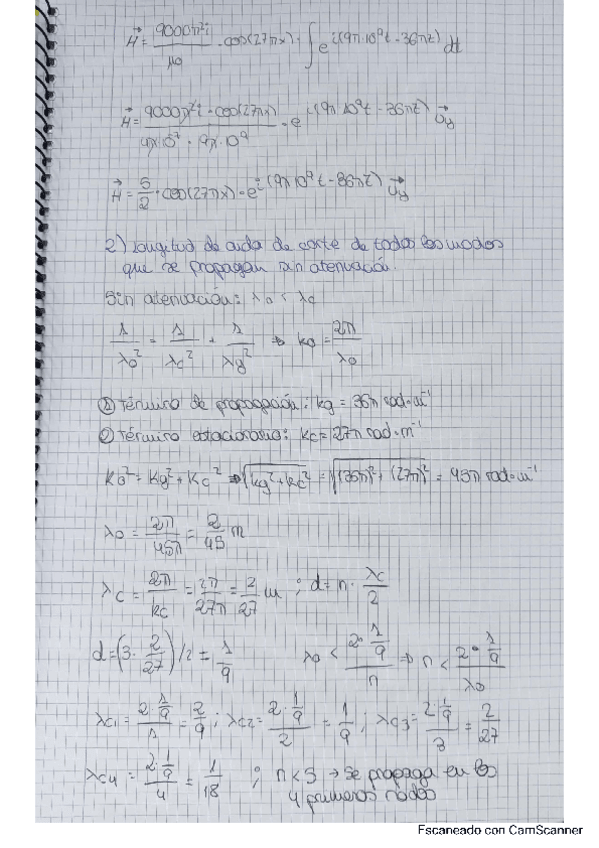 H⃗ = 9000π²i / μ0 · cos(27πx) · ∫ e^i(9π·10⁹t - 36πz) dt
H⃗ = 9000π²i · cos(27πx) / 4π·10⁷ · 9π·10⁹ · e^i(9π·10⁹t - 36πz) u⃗y
H⃗ = 5/2 · cos(27πx) · e^i(9π·10⁹t - 36πz) u⃗y
2) Longitud de onda de corte de todos los modos
que se propagan sin atenuación.
Sin atenuación: λ0 < λc
1/λ0² = 1/λc² + 1/λg² ⇒ k0 = 2π/λ0
① Término de propagación: kg = 36π rad·m⁻¹
② Término estacionario: kc = 27π rad·m⁻¹
K0² = Kg² + Kc² ⇒ √(kg² + kc²) = √((36π)² + (27π)²) = 45π rad·m⁻¹
λ0 = 2π/45π = 2/45 m
λc = 2π/kc = 2π/27π = 2/27 m ; d = n · λc/2
d = (3 · 2/27)/2 = 1/9 λ0 < 2·1/9 / n ⇒ n < 2·1/9 / λ0
λc1 = 2·1/9 / 1 = 2/9 ; λc2 = 2·1/9 / 2 = 1/9 ; λc3 = 2·1/9 / 3 = 2/27
λc4 = 2·1/9 / 4 = 1/18 ; n < 5 → Se propaga en los
4 primeros modos
Escaneado con CamScanner